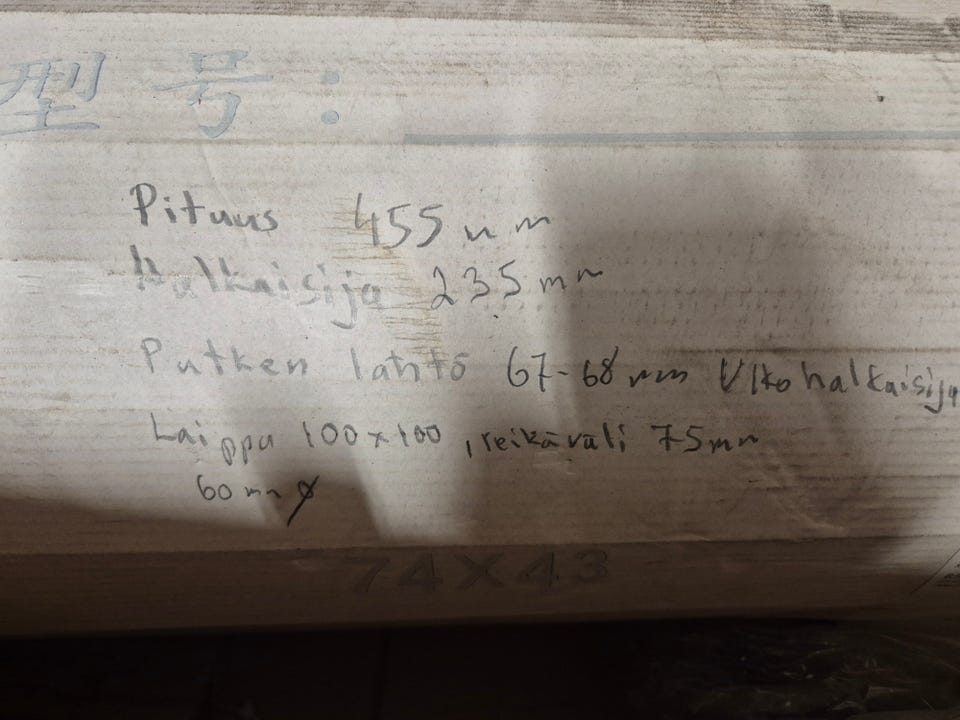 型号:
Pituus 455 mm
Halkaisija 235 mm
Putken lähtö 67-68 mm Ulkohalkaisija
Laippa 100x100, reikäväli 75mm
60 mm ø
74X43